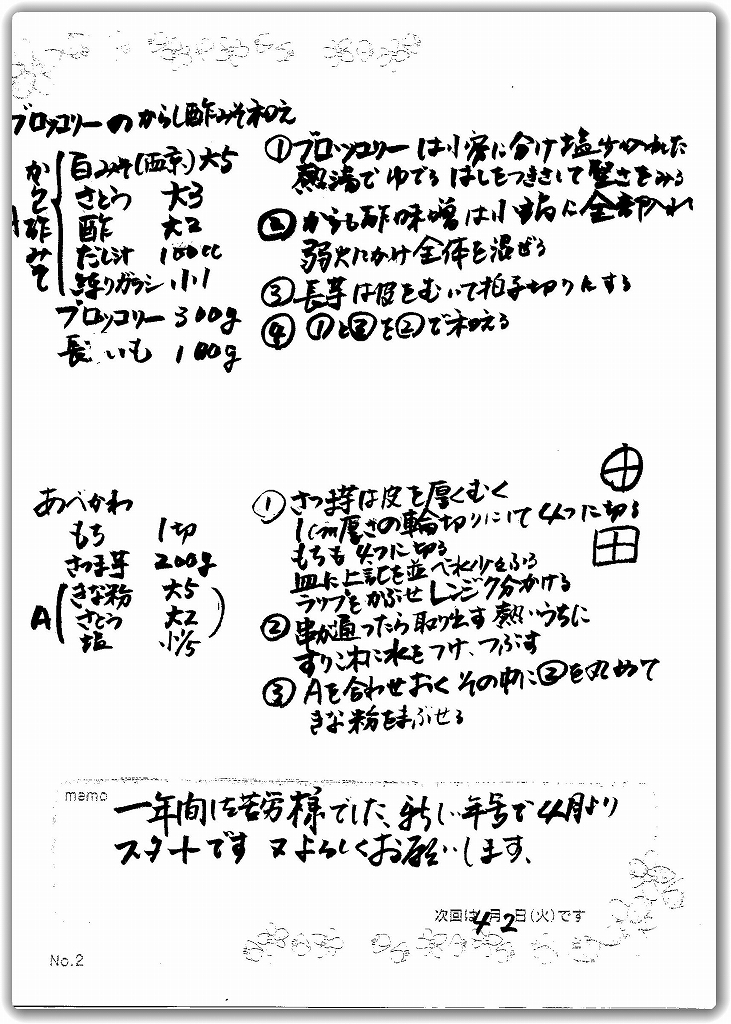 ブロッコリーのからし酢みそ和え
A からし酢みそ
白みそ(西京)大5
さとう 大3
酢 大2
だし汁 100cc
練りガラシ 小1
ブロッコリー 300g
長いも 100g
①ブロッコリーは小房に分け塩少々入れた
熱湯でゆでる はしをつきさして堅さをみる
②からし酢味噌は小鍋に全部入れ
弱火にかけ全体を混ぜる
③長芋は皮をむいて拍子切りにする
④①と③を②で和える
あべかわ
もち 1切
さつま芋 200g
A
きな粉 大5
さとう 大2
塩 小1/5
①さつま芋は皮を厚くむく
1cm厚さの輪切りにして4つに切る
もちも4つに切る
皿に上記を並べ水少々ふる
ラップをかぶせレンジ7分かける
②串が通ったら取り出す 熱いうちに
すりこ木に水をつけ、つぶす
③Aを合わせおく その中に②を丸めて
きな粉をまぶせる
memo
一年間ご苦労様でした、新しい年号で4月より
スタートです 又よろしくお願いします、
次回は4月2日(火)です
No.2